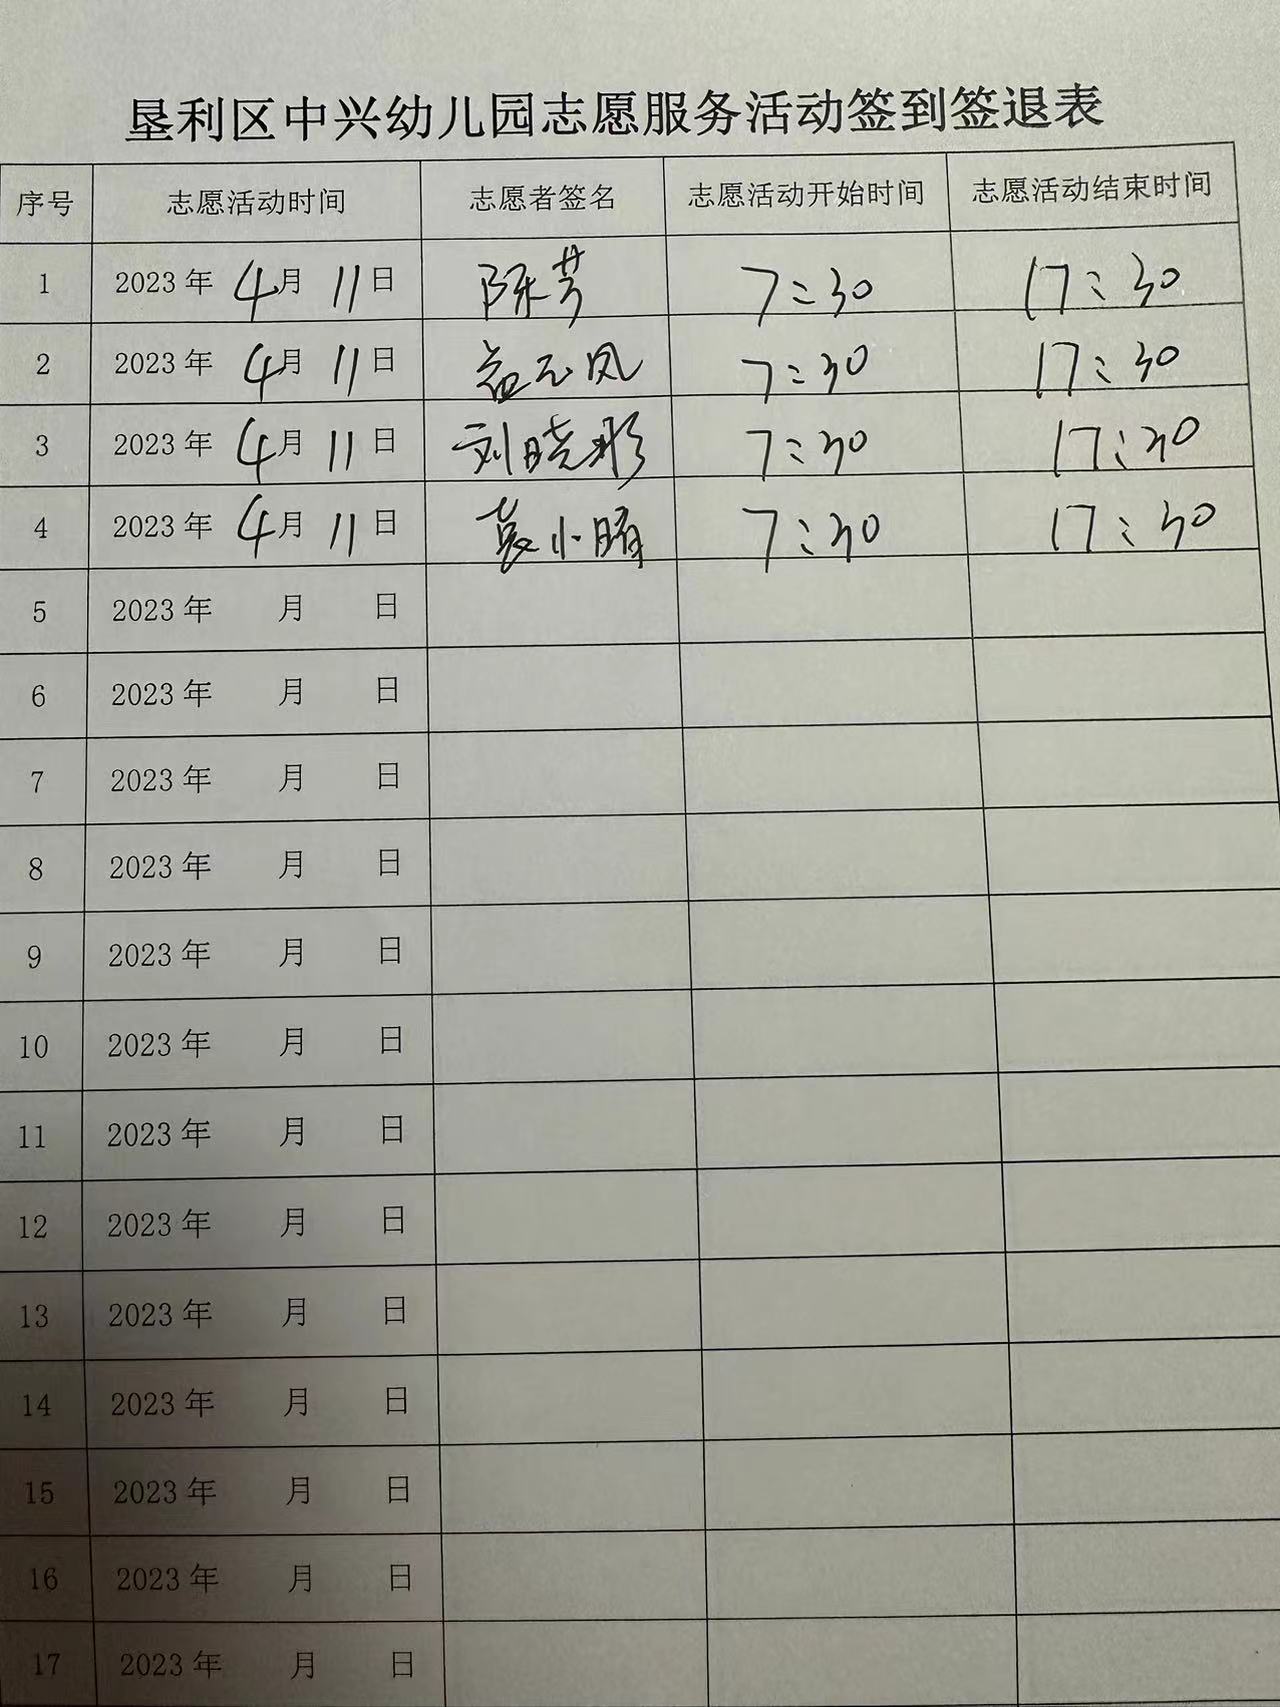 垦利区中兴幼儿园志愿服务活动签到签退表
序号 志愿活动时间 志愿者签名 志愿活动开始时间 志愿活动结束时间
1 2023年 4月 11日 陈芳 7:30 17:30
2 2023年 4月 11日 7:30 17:30
3 2023年 4月 11日 刘晓彤 7:30 17:30
4 2023年 4月 11日 袁小晴 7:30 17:30
5 2023年 月 日
6 2023年 月 日
7 2023年 月 日
8 2023年 月 日
9 2023年 月 日
10 2023年 月 日
11 2023年 月 日
12 2023年 月 日
13 2023年 月 日
14 2023年 月 日
15 2023年 月 日
16 2023年 月 日
17 2023年 月 日